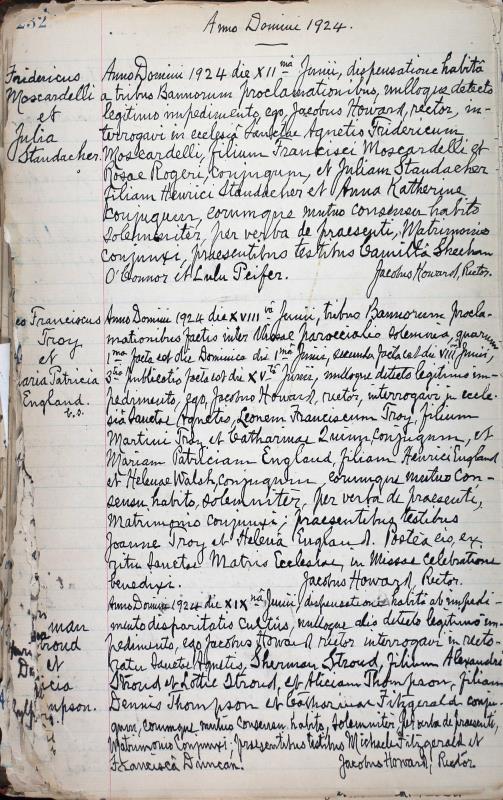 232
Anno Domini 1924.
Fridericus
Moscardelli
et
Julia
Staudacher.
Anno Domini 1924 die XII mâ Junii, dispensatione habitâ
a tribus Bannorum proclamationibus, nulloque detecto
legitimo impedimento, ego, Jacobus Howard, rector, in-
terrogavi in ecclesia Sanctae Agnetis Fridericum
Moscardelli, filium Francisci Moscardelli et
Rosae Rogeri, conjugum, et Juliam Staudacher
filiam Henrici Staudacher et Anna Katherine
conjugum, eorumque mutuo consensu habito
solemniter, per verba de praesenti, Matrimonio
conjunxi, praesentibus testibus Camillâ Sheehan
O'Connor et Lulu Peifer.
Jacobus Howard, Rector.
eo Franciscus
Troy
et
aria Patricia
England.
Anno Domini 1924 die XVIII vâ Junii, tribus Bannorum procla-
mationibus factis inter Missae parocchialis solemnia, quarum
1 ma facta est die Dominica die 1 mâ Junii, secunda facta est die VIII Junii,
3 tia publicatio facta est die XV tâ Junii, nulloque detecto legitimo im-
pedimento, ego, Jacobus Howard, rector, interrogavi in eccle-
siâ Sanctae Agnetis, Leonem Franciscum Troy, filium
Martini Troy et Catharinae Quinn, conjugum, et
Mariam Patriciam England, filiam Henrici England
et Helenae Walsh, conjugum, eorumque mutuo con-
sensu habito, solemniter, per verba de praesente,
Matrimonio conjunxi; praesentibus testibus
Joanne Troy et Helena England. Postea eis, ex
ritu Sanctae Matris Ecclesiae, in Missae celebratione
benedixi.
Jacobus Howard, Rector.
man
troud
et
icia
mpson.
Anno Domini 1924 die XIX nâ Junii, dispensatione habitâ ab impedi-
mento disparitatis cultus, nulloque alio detecto legitimo im-
pedimento, ego Jacobus Howard rector interrogavi in recto-
ratu Sanctae Agnetis, Sherman Stroud, filium Alexandri
Stroud et Lottie Stroud, et Aliciam Thompson, filiam
Dennis Thompson et Catharinae Fitzgerald conju-
gum, eorumque mutuo consensu habito, solemniter per verba de praesenti,
Matrimonio conjunxi; praesentibus testibus Michaele Fitzgerald et
Franciscâ Duncan.
Jacobus Howard, Rector